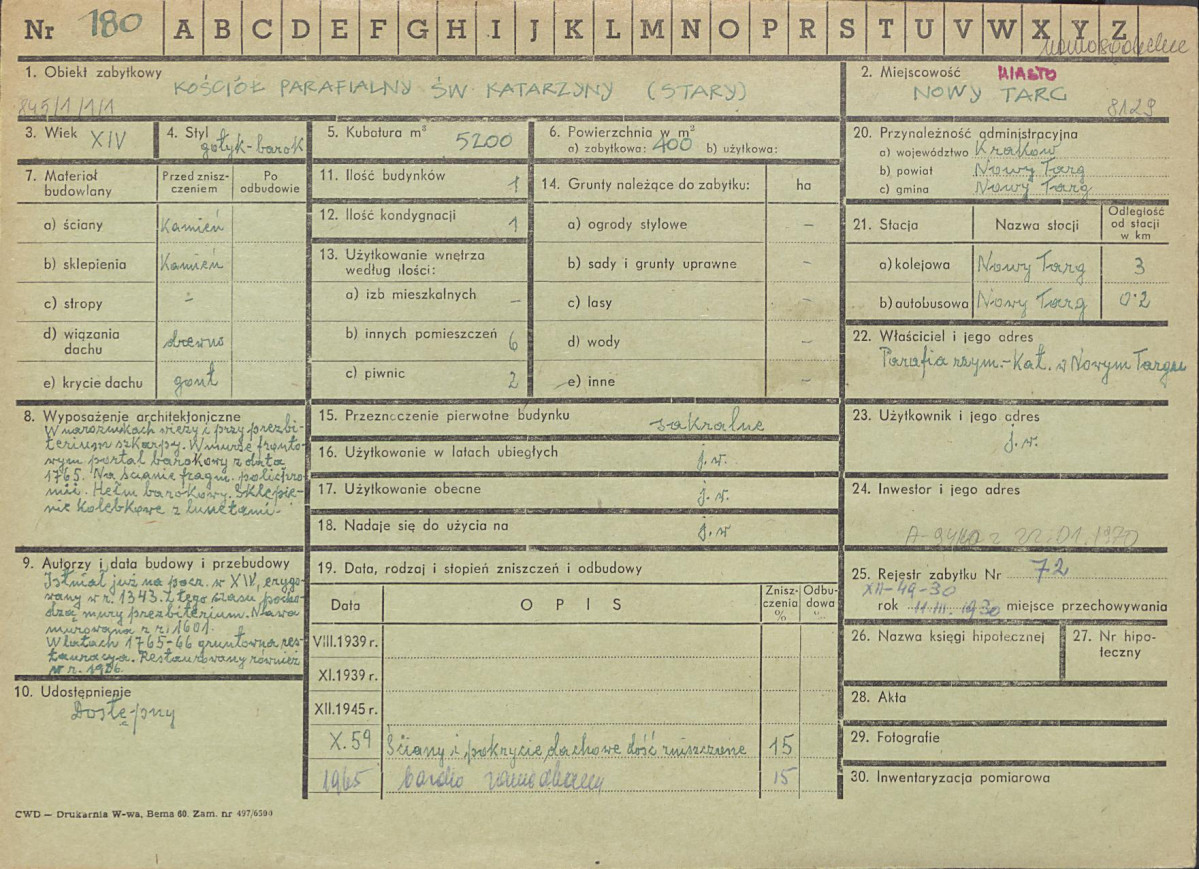 Nr 180 A B C D E F G H I J K L M N O P R S T U V W X Y Z
1. Obiekt zabytkowy
KOŚCIÓŁ PARAFIALNY ŚW. KATARZYNY (STARY)
845/1/1/1
2. Miejscowość MIASTO
NOWY TARG
8129
3. Wiek XIV
4. Styl gotyk-barok
5. Kubatura m³ 5200
6. Powierzchnia w m²
a) zabytkowa: 400 b) użytkowa:
7. Materiał budowlany
Przed zniszczeniem
Po odbudowie
a) ściany Kamień
b) sklepienia Kamień
c) stropy -
d) wiązania dachu drewno
e) krycie dachu gont
8. Wyposażenie architektoniczne
W narożnikach wieży i przy prezbi-
terium szkarpy. W murze fronto-
wym portal barokowy z datą
1765. Na ścianie fragm. polichro-
mii. Hełm barokowy. Sklepie-
nie kolebkowe z lunetami.
9. Autorzy i data budowy i przebudowy
Istniał już na pocz. w XIV, erygo-
wany w r. 1343. Z tego czasu pocho-
dzą mury prezbiterium. Nawa
murowana z r. 1601.
W latach 1765-66 gruntowna res-
tauracja. Restaurowany również
w r.
10. Udostępnienie
Dostępny
11. Ilość budynków 1
12. Ilość kondygnacji 1
13. Użytkowanie wnętrza według ilości:
a) izb mieszkalnych -
b) innych pomieszczeń 6
c) piwnic 2
14. Grunty należące do zabytku: ha
a) ogrody stylowe -
b) sady i grunty uprawne -
c) lasy -
d) wody -
e) inne -
15. Przeznaczenie pierwotne budynku sakralne
16. Użytkowanie w latach ubiegłych j.w.
17. Użytkowanie obecne j.w.
18. Nadaje się do użycia na j.w
19. Data, rodzaj i stopień zniszczeń i odbudowy
Data O P I S Zniszczenia % Odbudowa %
VIII.1939 r.
XI.1939 r.
XII.1945 r.
X.59 Ściany i pokrycie dachowe dość zniszczone 15
1965 bardzo 15
20. Przynależność administracyjna
a) województwo Kraków
b) powiat Nowy Targ
c) gmina Nowy Targ
21. Stacja Nazwa stacji Odległość od stacji w km
a) kolejowa Nowy Targ 3
b) autobusowa Nowy Targ 0.2
22. Właściciel i jego adres
Parafia rzym.-Kat. w Nowym Targu
23. Użytkownik i jego adres
j.w.
24. Inwestor i jego adres
22.01.1970
25. Rejestr zabytku Nr 72
XII-49-30
rok 11.III.1930 miejsce przechowywania
26. Nazwa księgi hipotecznej
27. Nr hipoteczny
28. Akta
29. Fotografie
30. Inwentaryzacja pomiarowa
CWD — Drukarnia W-wa, Bema 60. Zam. nr 497/6590